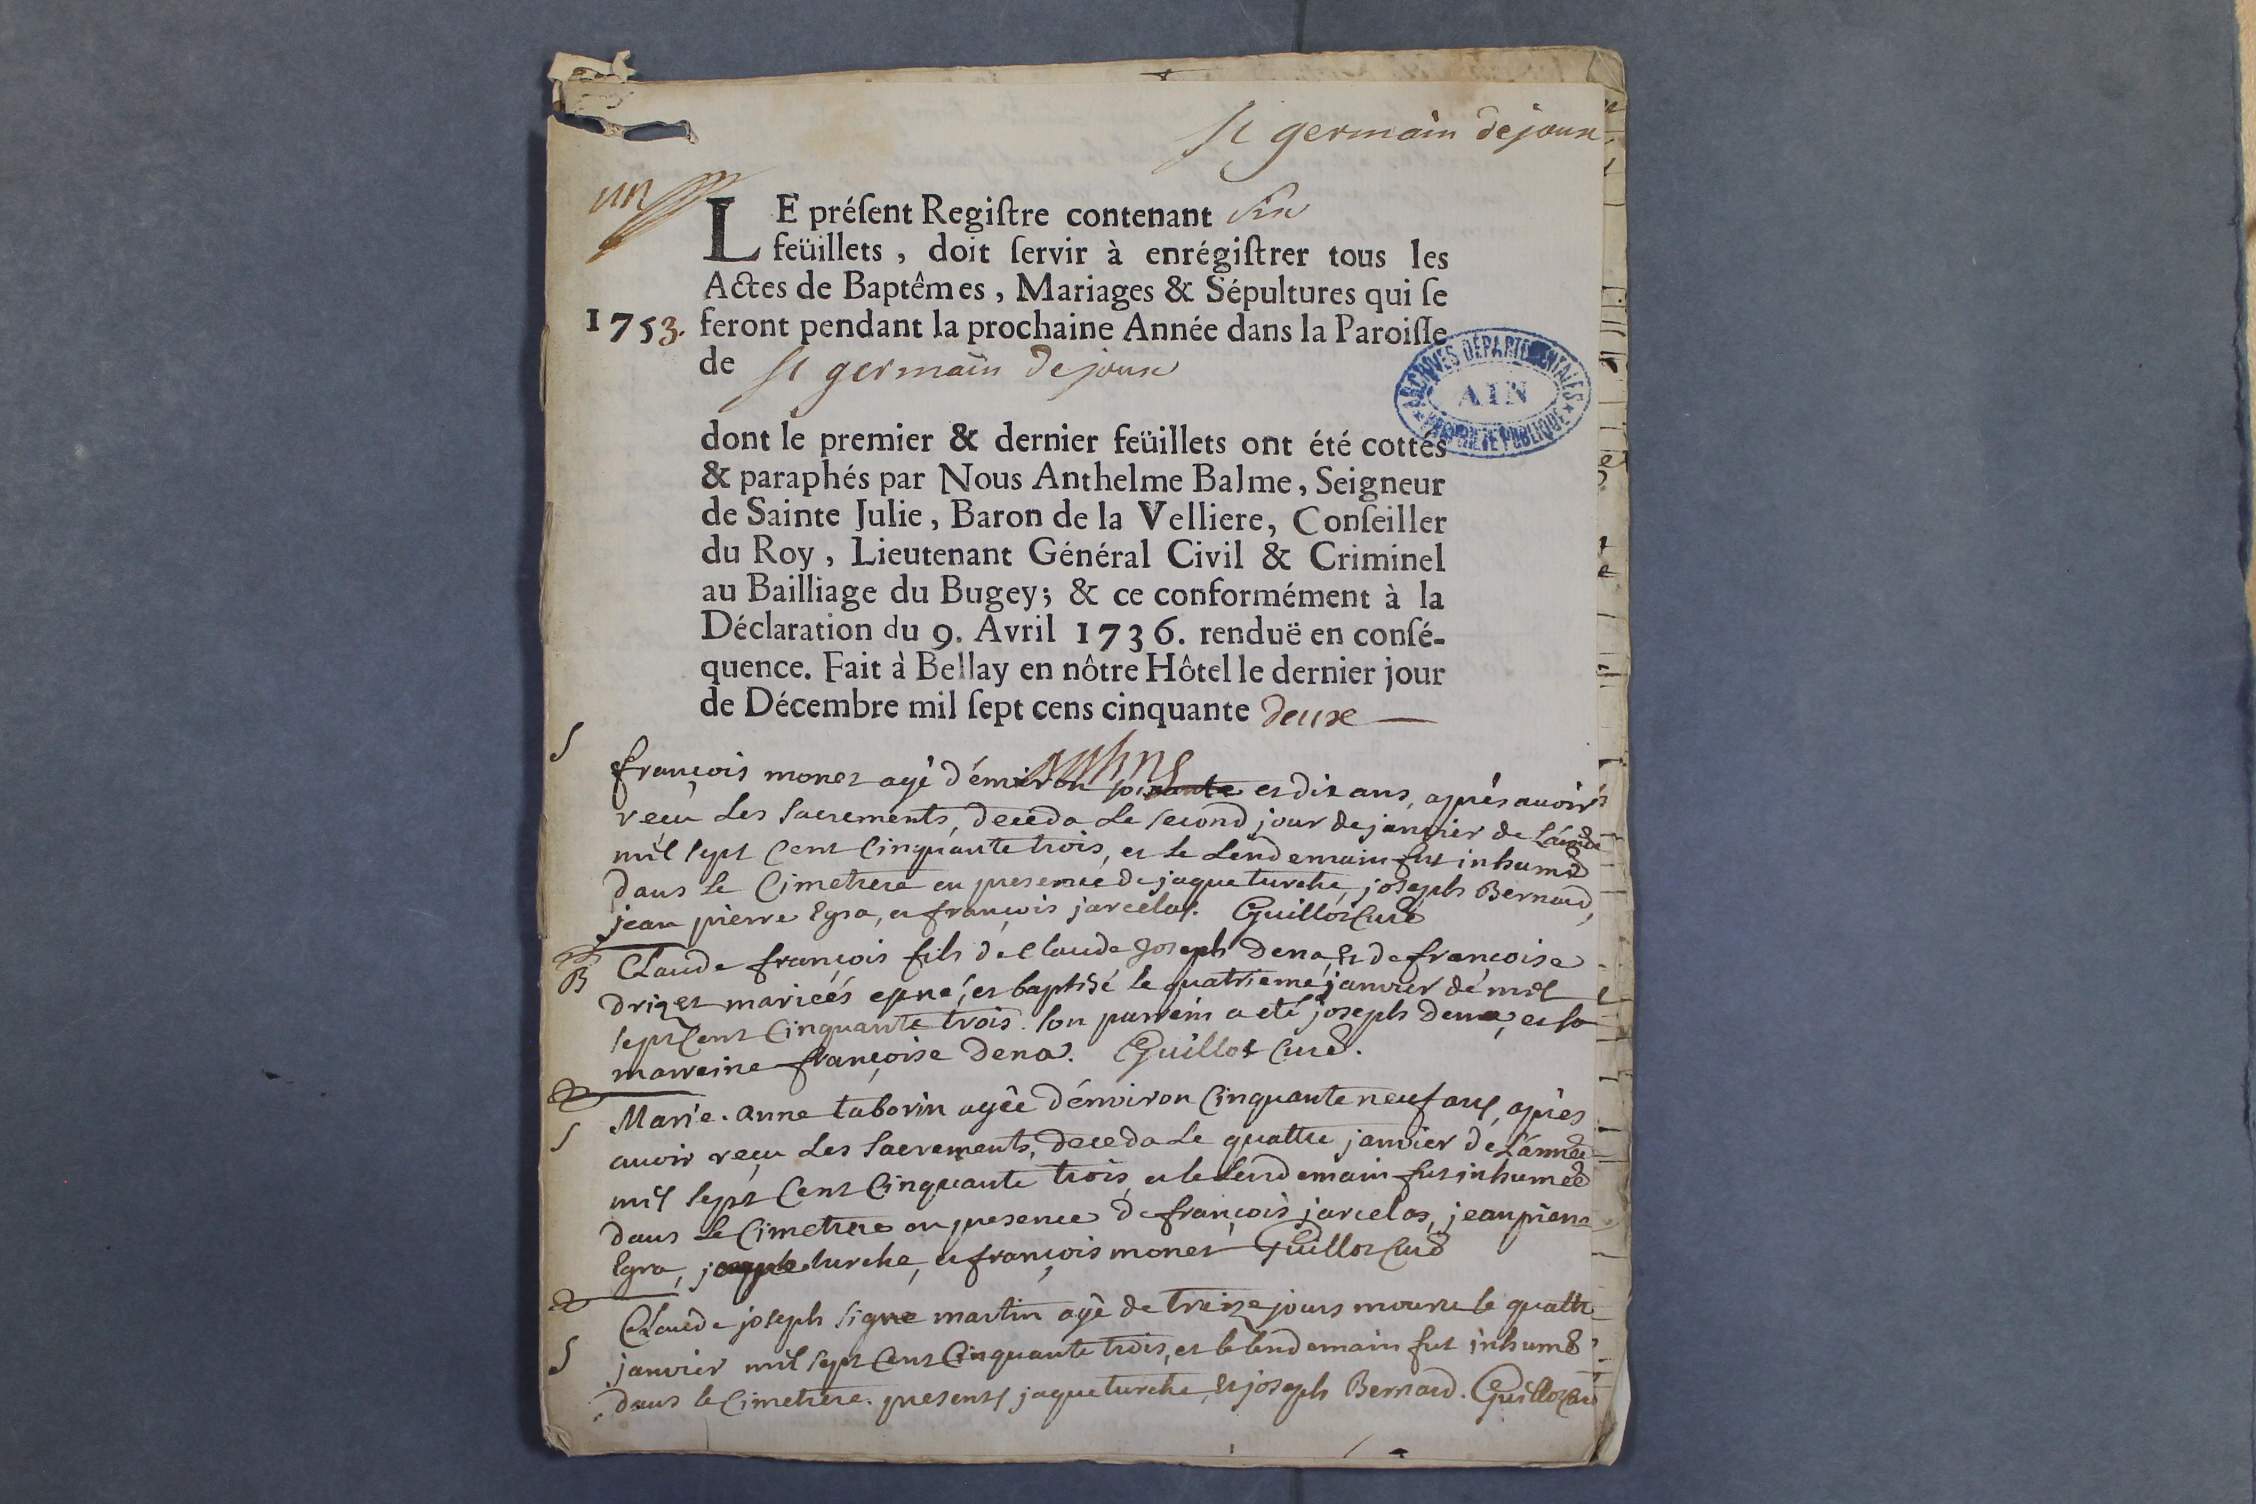 st germain dejoux
un
LE préſent Regiſtre contenant six
feüillets, doit ſervir à enrégiſtrer tous les
Actes de Baptêmes, Mariages & Sépultures qui ſe
1753. feront pendant la prochaine Année dans la Paroiſſe
de st germain dejoux
ARCHIVES DÉPARTEMENTALES
AIN
PROPRIÉTÉ PUBLIQUE
dont le premier & dernier feüillets ont été cottés
& paraphés par Nous Anthelme Balme, Seigneur
de Sainte Julie, Baron de la Velliere, Conſeiller
du Roy, Lieutenant Général Civil & Criminel
au Bailliage du Bugey; & ce conformément à la
Déclaration du 9. Avril 1736. renduë en conſé-
quence. Fait à Bellay en nôtre Hôtel le dernier jour
de Décembre mil ſept cens cinquante deux
S
françois monet agé d'émviron soixante et dix ans, aprés avoir
reçu Les Sacrements, deceda Le second jour de janvier de L'année
mil sept Cent Cinquante trois, et Le Lendemain fut inhumé
dans Le Cimetiere en presence de jaque turche, joseph Bernard,
jean pierre Egra, et françois jarcelas. Guillot Curé
B Claude françois fils de Claude Joseph Dena, et de françoise
drizet mariéés est né, et baptisé le quatrieme janvier dé mil
sept Cent Cinquante trois. son parrein a eté joseph dena, et sa
marreine françoise Dena. Guillot Curé.
Marie. anne taborin agée d'énviron Cinquante neuf ans, aprés
S avoir reçu Les Sacrements, deceda Le quattre janvier de L'année
mil sept Cent Cinquante trois, et le Lendemain fut inhumée
dans Le Cimetiere en presence de françois jarcelas, jean pierre
Egra, turche, et françois monet Guillot Curé
Claude joseph signe martin agé de treize jours mourut le quattre
S janvier mil sept Cent Cinquante trois, et le lendemain fut inhumé
dans le Cimetiere. presents jaque turche, et joseph Bernard. Guillot Curé